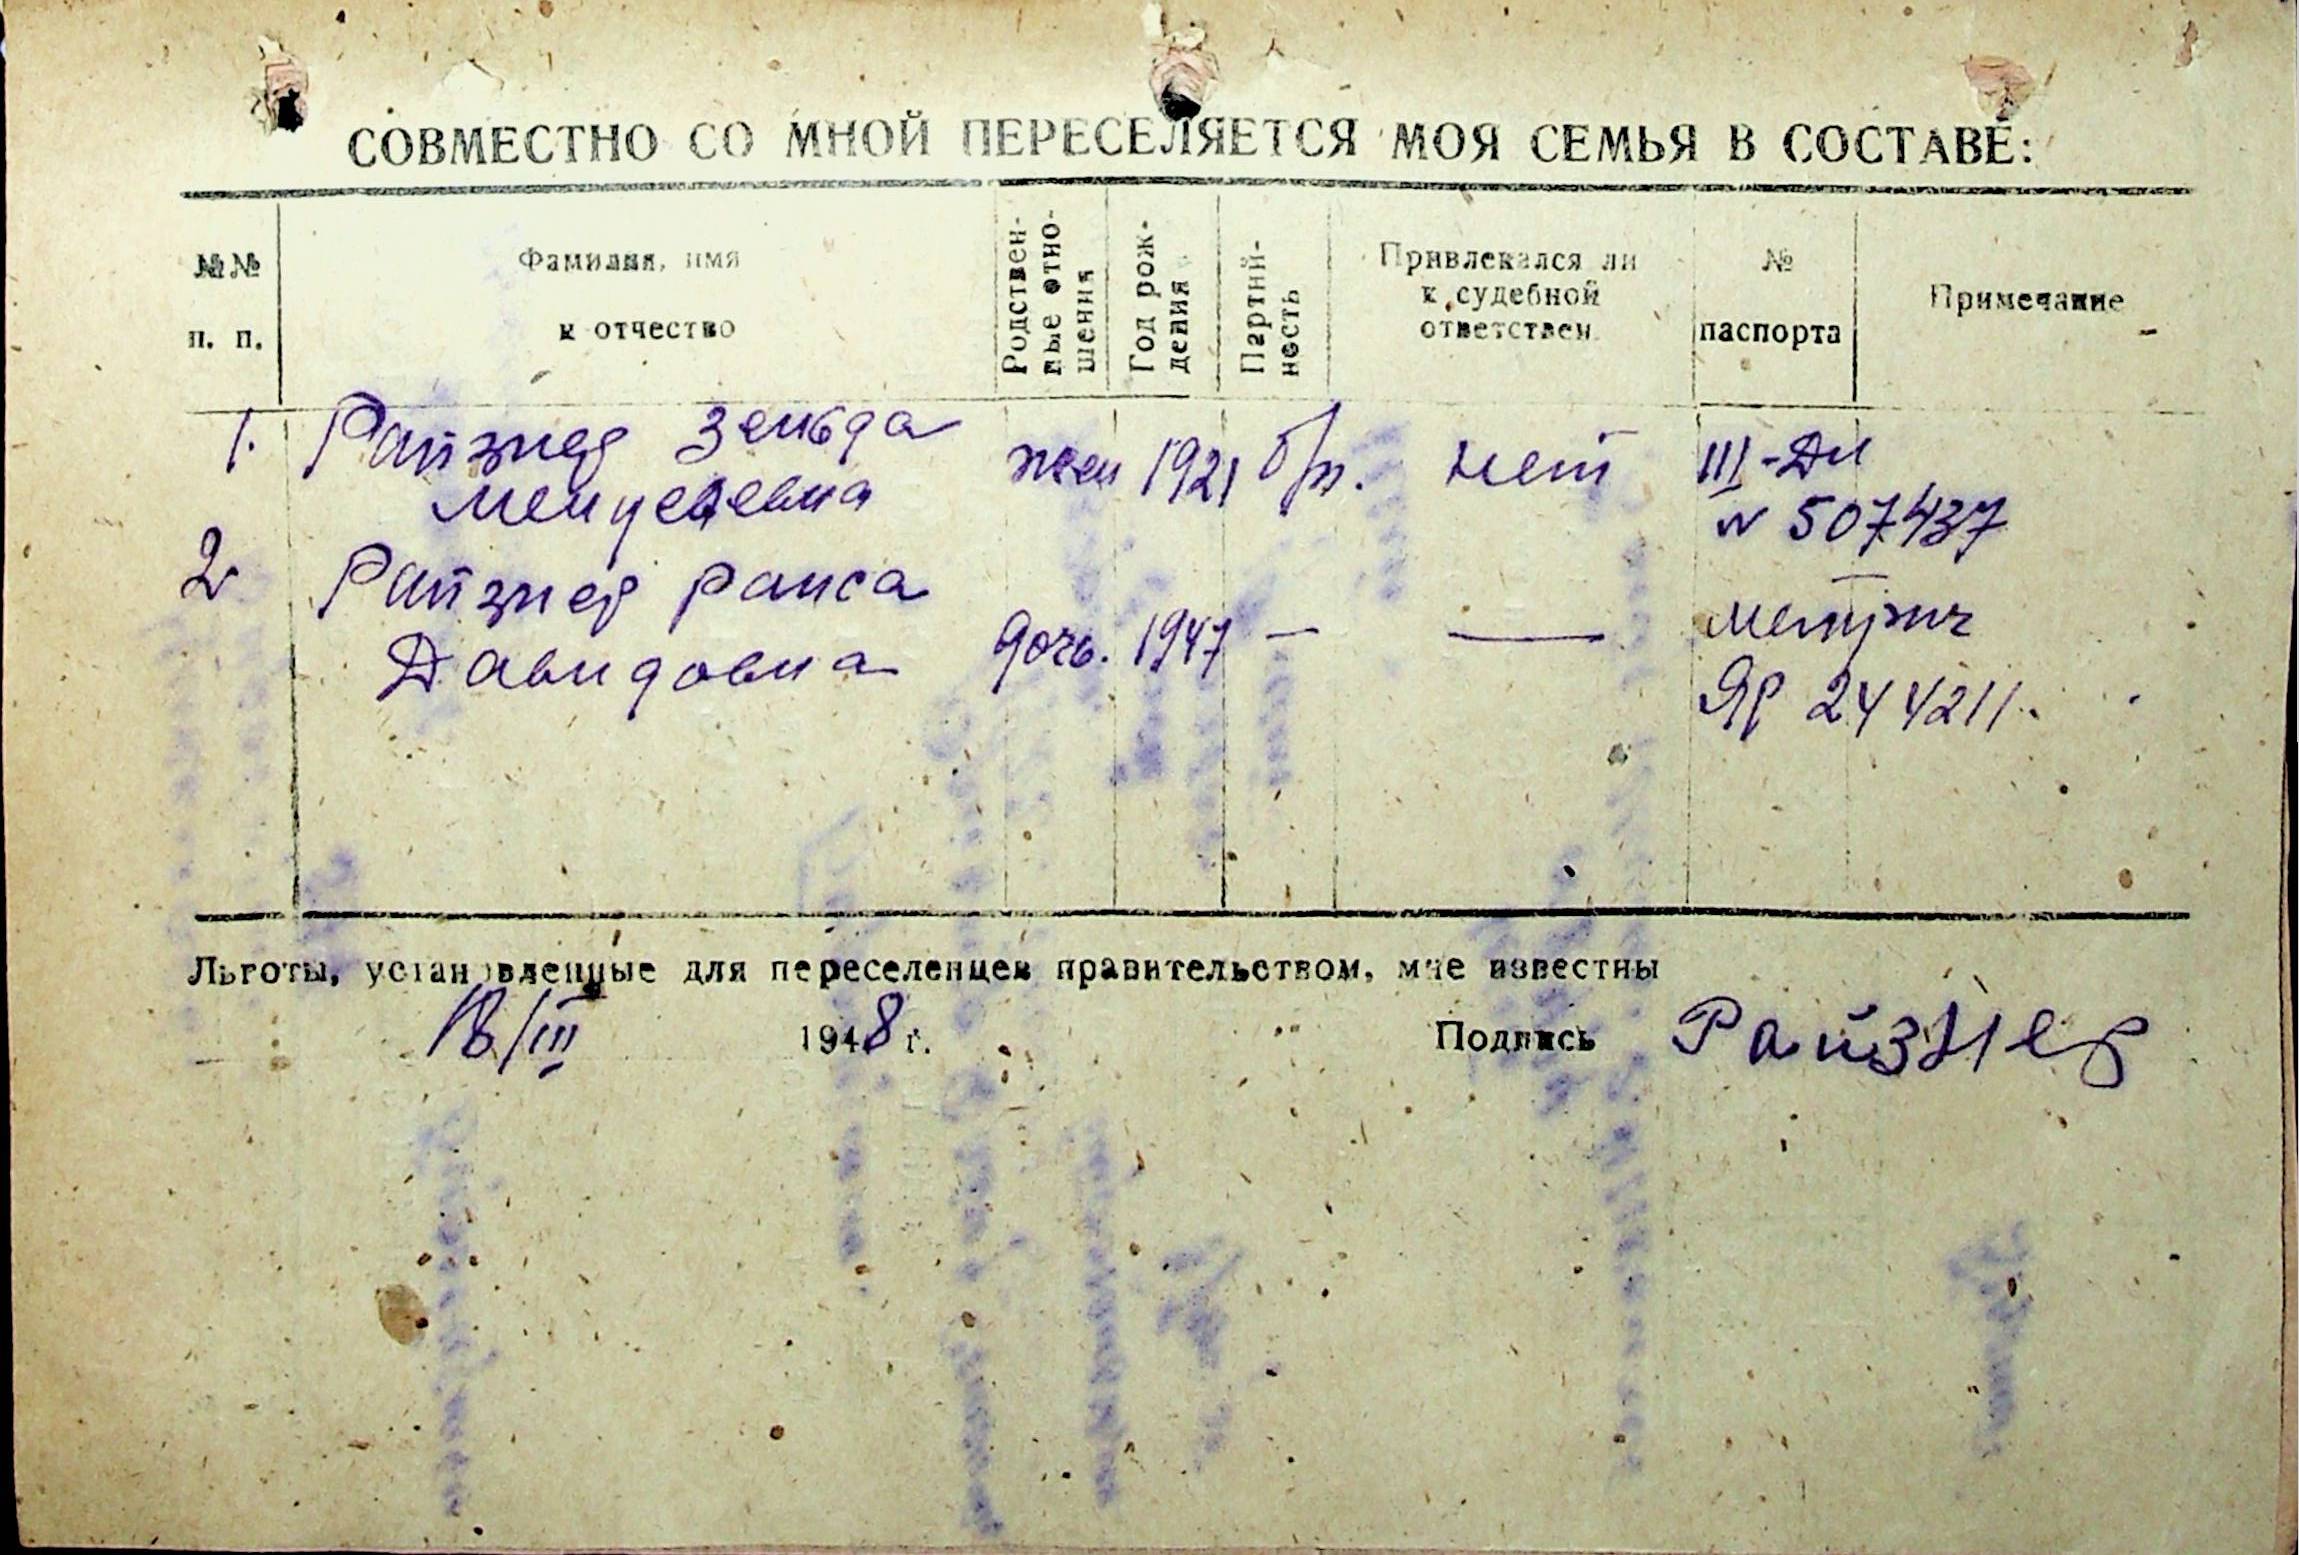 СОВМЕСТНО СО МНОЙ ПЕРЕСЕЛЯЕТСЯ МОЯ СЕМЬЯ В СОСТАВЕ:
№№
п. п.
Фамилия, имя
и отчество
Родствен-
ные отно-
шения
Год рож-
дения
Партий-
ность
Привлекался ли
к судебной
ответствен.
№
паспорта
Примечание
1. Райзнер Зельда жен 1921 б/п. нет III-ДМ
№ 507437
2 Райзнер Раиса
Давидовна дочь. 1947 — — метрич
ЯР 244211.
Льготы, установленные для переселенцев правительством, мне известны
18/III 1948 г. Подпись Райзнер